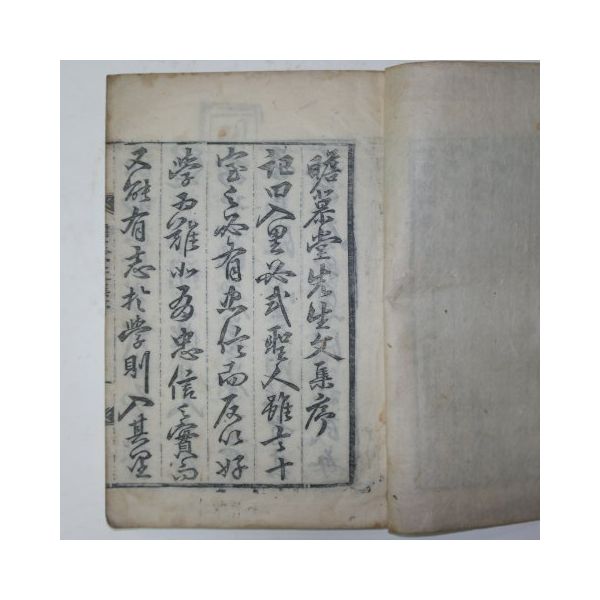 瞻慕堂先生文集序
記曰入里必式聖人雖言十
室之必有忠信而反以好
學為難以夛忠信之實而
又能有志於學則入其里